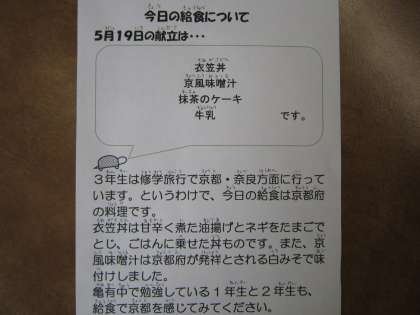 今日の給食について
5月19日の献立は・・・
衣笠丼
京風味噌汁
抹茶のケーキ
牛乳 です。
3年生は修学旅行で京都・奈良方面に行って
います。というわけで、今日の給食は京都府
の料理です。
衣笠丼は甘辛く煮た油揚げとネギをたまごで
とじ、ごはんに乗せた丼ものです。また、京
風味噌汁は京都府が発祥とされる白みそで味
付けしました。
亀有中で勉強している1年生と2年生も、
給食で京都を感じてみてください。